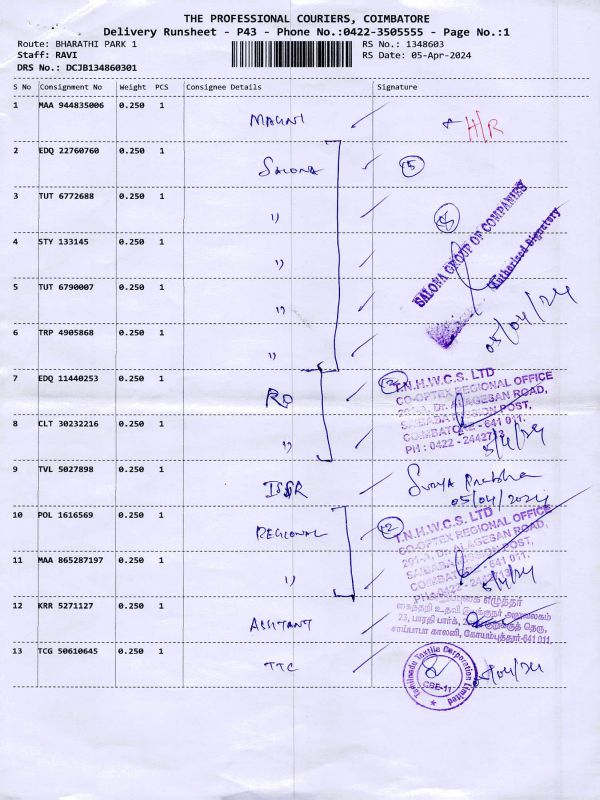 THE PROFESSIONAL COURIERS, COIMBATORE
Delivery Runsheet - P43 - Phone No.:0422-3505555 - Page No.:1
Route: BHARATHI PARK 1
RS No.: 1348603
Staff: RAVI
RS Date: 05-Apr-2024
DRS No.: DCJB134860301
S No Consignment No Weight PCS Consignee Details Signature
1 MAA 944835006 0.250 1 H/R
2 EDQ 22760760 0.250 1 SALONA 5
3 TUT 6772688 0.250 1 "
4 STY 133145 0.250 1 "
5 TUT 6790007 0.250 1 "
6 TRP 4905868 0.250 1 "
SALONA GROUP OF COMPANIES
Authorised Signatory
05/04/24
7 EDQ 11440253 0.250 1 RO
8 CLT 30232216 0.250 1 "
T.N.H.W.C.S. LTD
CO-OPTEX REGIONAL OFFICE
ALAGESAN ROAD,
SAIBABA MISSION POST,
COIMBATORE - 641 011.
PH : 0422 - 2442713
9 TVL 5027898 0.250 1 Surya Prabha
05/04/2024
10 POL 1616569 0.250 1 REGIONAL 2
11 MAA 865287197 0.250 1 "
T.N.H.W.C.S. LTD
CO-OPTEX REGIONAL OFFICE
ALAGESAN ROAD,
SAIBABA MISSION POST,
COIMBATORE - 641 011.
12 KRR 5271127 0.250 1
கைத்தறி உதவி இயக்குநர் அலுவலகம்
23, பாரதி பார்க்,
சாய்பாபா காலனி, கோயம்புத்தூர்-641 011.
13 TCG 50610645 0.250 1 TTC
Tamilnadu Textile Corporation Limited
CBE-11